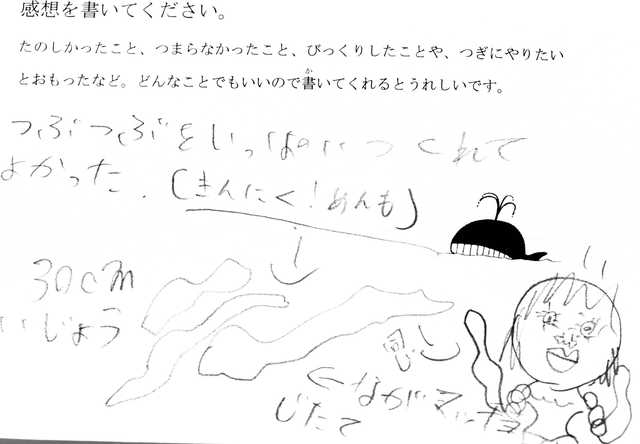 感想を書いてください。
たのしかったこと、つまらなかったこと、びっくりしたことや、つぎにやりたい
とおもったなど。どんなことでもいいので書いてくれるとうれしいです。
か
つぶつぶをいっぱいつくれて
よかった.(きんにく!めんも)
30cm
いじょう